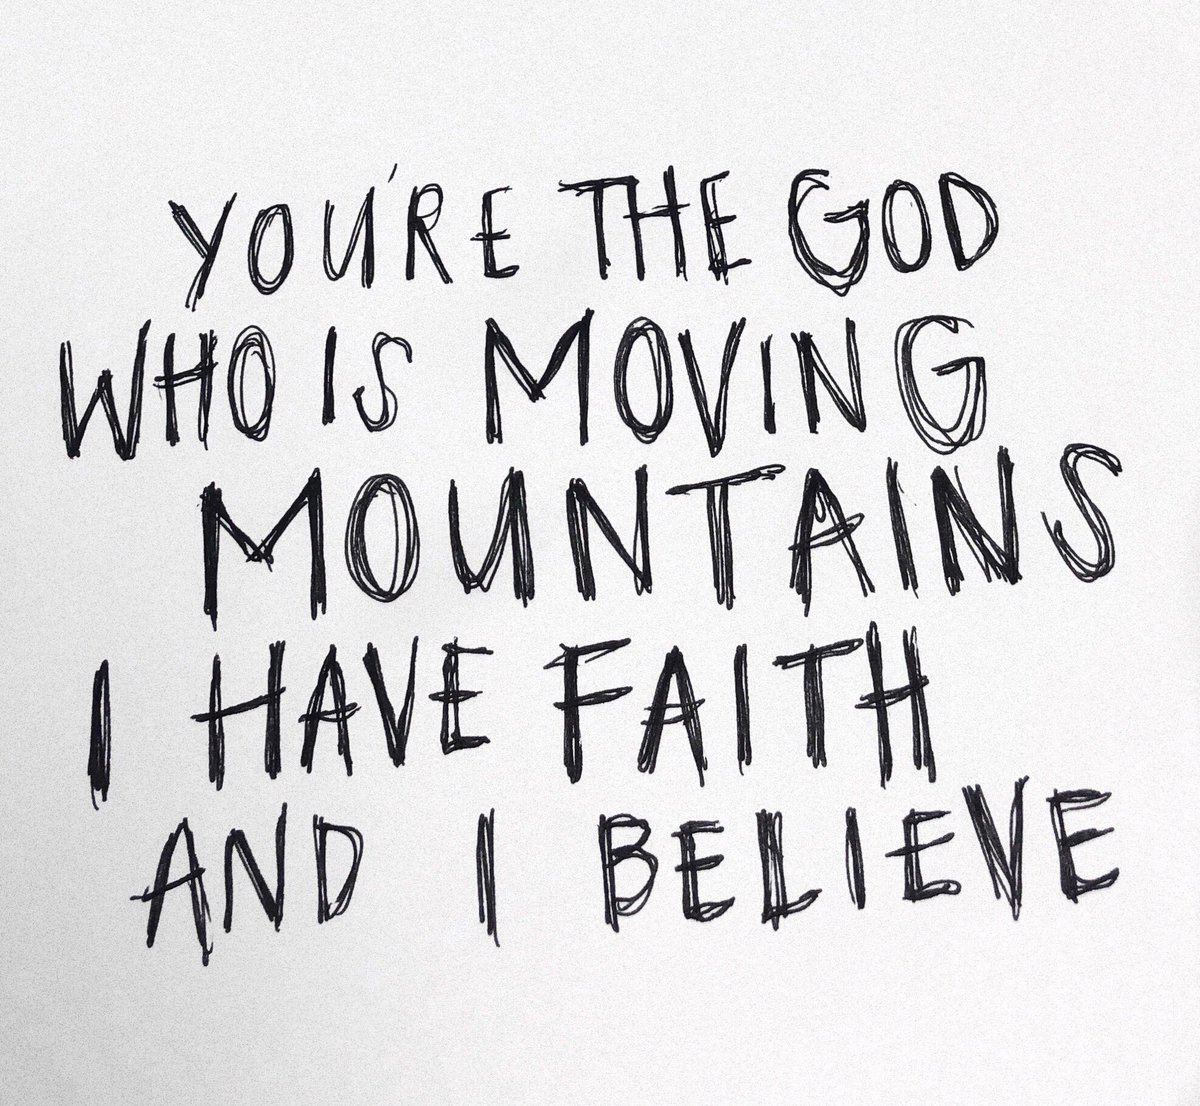 YOU'RE THE GOD
WHO IS MOVING
MOUNTAINS
I HAVE FAITH
AND I BELIEVE